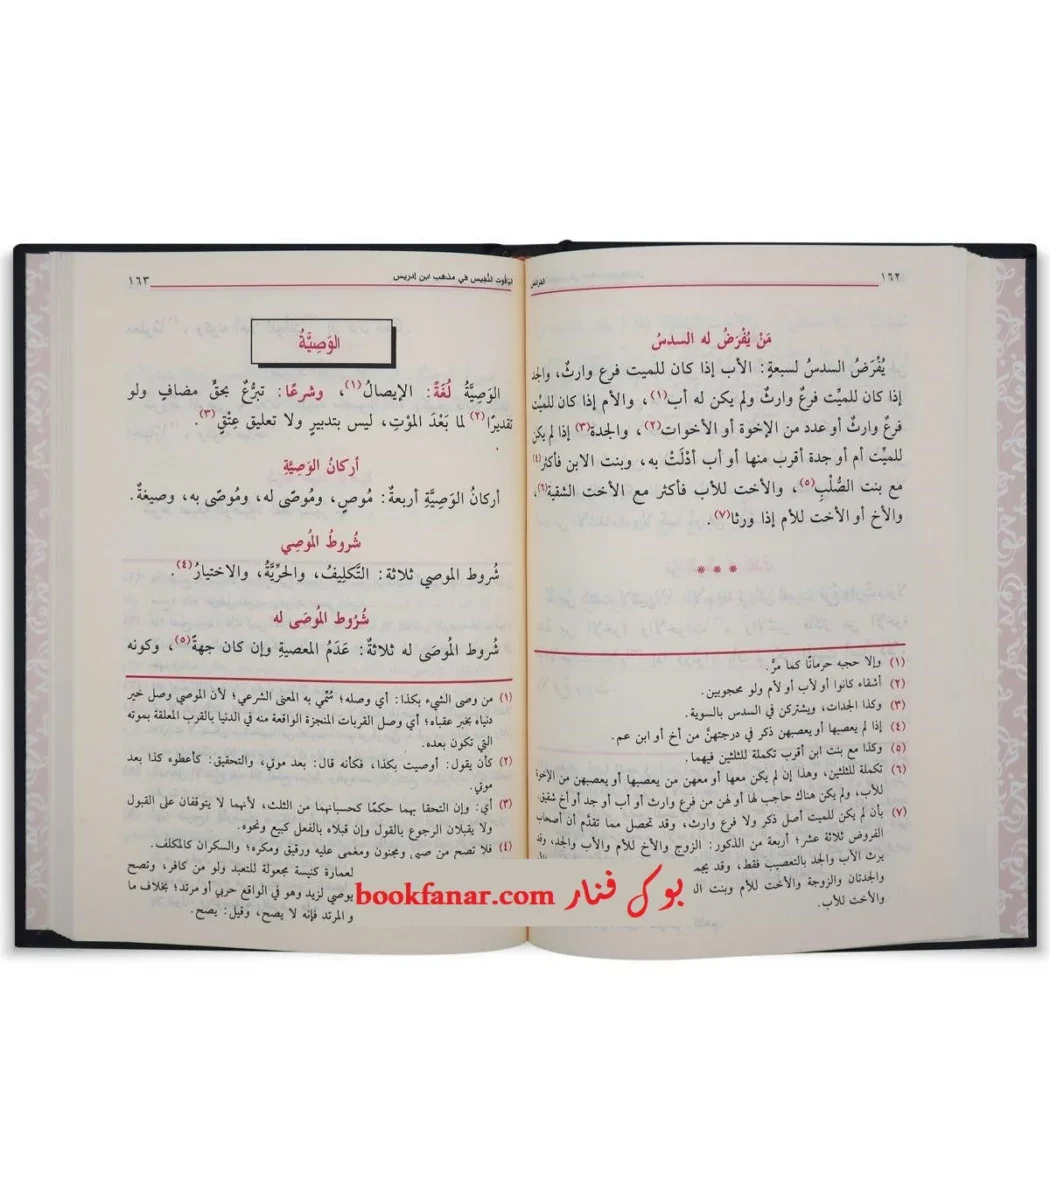 ١٦٢
الفرائض
مَنْ يُفْرَضُ له السدسُ
يُفْرَضُ السدسُ لسبعةٍ: الأب إذا كان للميت فرع وارثٌ، والجد
إذا كان للميِّت فرعٌ وارثٌ ولم يكن له أب(١)، والأم إذا كان للميِّت
فرعٌ وارثٌ أو عدد من الإخوة أو الأخوات(٢)، والجدة(٣) إذا لم يكن
للميِّت أم أو جدة أقرب منها أو أب أدْلَتْ به، وبنت الابن فأكثر(٤)
مع بنت الصُّلْبِ(٥)، والأخت للأب فأكثر مع الأخت الشقيقة(٦)،
والأخ أو الأخت للأم إذا ورثا(٧).
* * *
(١) وإلا حجبه حرمانًا كما مرَّ.
(٢) أشقاء كانوا أو لأب أو لأم ولو محجوبين.
(٣) وكذا الجدات، ويشتركن في السدس بالسوية.
(٤) إذا لم يعصبها أو يعصبهن ذكر في درجتهنَّ من أخ أو ابن عم.
(٥) وكذا مع بنت ابن أقرب تكملة للثلثين فيهما.
(٦) تكملة للثلثين، وهذا إن لم يكن معها أو معهن من يعصبها أو يعصبهن من الإخوة
للأب، ولم يكن هناك حاجب لها أو لهن من فرع وارث أو أب أو جد أو أخ شقيق.
(٧) بأن لم يكن للميت أصل ذكر ولا فرع وارث، وقد تحصل مما تقدَّم أن أصحاب
الفروض ثلاثة عشر؛ أربعة من الذكور: الزوج والأخ للأم والأب والجد، وقد
يرث الأب والجد بالتعصيب فقط، وقد يجم
والجدتان والزوجة والأخت للأم وبنت ال
والأخت للأب.
الياقوت النَّفِيس في مذهب ابن إدريس
١٦٣
الوَصِيَّةُ
الوَصِيَّةُ لُغَةً: الإيصالُ(١)، وشرعًا: تبرُّعٌ بحقٍّ مضافٍ ولو
تقديرًا(٢) لما بَعْدَ المَوْتِ، ليس بتدبيرٍ ولا تعليق عِتْقٍ(٣).
أركانُ الوَصِيَّةِ
أركانُ الوَصِيَّةِ أربعةٌ: مُوصٍ، ومُوصًى له، ومُوصًى به، وصيغةٌ.
شُروطُ المُوصِي
شُروط الموصي ثلاثة: التَّكلِيفُ، والحرِّيَّةُ، والاختيارُ(٤).
شُرُوط المُوصَى له
شُروط المُوصَى له ثلاثةٌ: عَدَمُ المعصيةِ وإن كان جهةً(٥)، وكونه
(١) من وصى الشيء بكذا: أي وصله؛ سُمِّي به المعنى الشرعي؛ لأن الموصي وصل خير
دنياه بخير عقباه؛ أي وصل القربات المنجزة الواقعة منه في الدنيا بالقرب المعلقة بموته
التي تكون بعده.
(٢) كأن يقول: أوصيت بكذا، فكأنه قال: بعد موتي، والتحقيق: كأعطوه كذا بعد
موتي.
(٣) أي: وإن التحقا بهما حكمًا كحسبانهما من الثلث، لأنهما لا يتوقفان على القبول
ولا يقبلان الرجوع بالقول وإن قبلاه بالفعل كبيع ونحوه.
(٤) فلا تصح من صبي ومجنون ومغمى عليه ورقيق ومكره؛ والسكران كالمكلف.
لعمارة كنيسة مجعولة للتعبد ولو من كافر، وتصح
يوصي لزيد وهو في الواقع حربي أو مرتد؛ بخلاف ما
و المرتد فإنه لا يصح، وقيل: يصح.
بوك فنار bookfanar.com